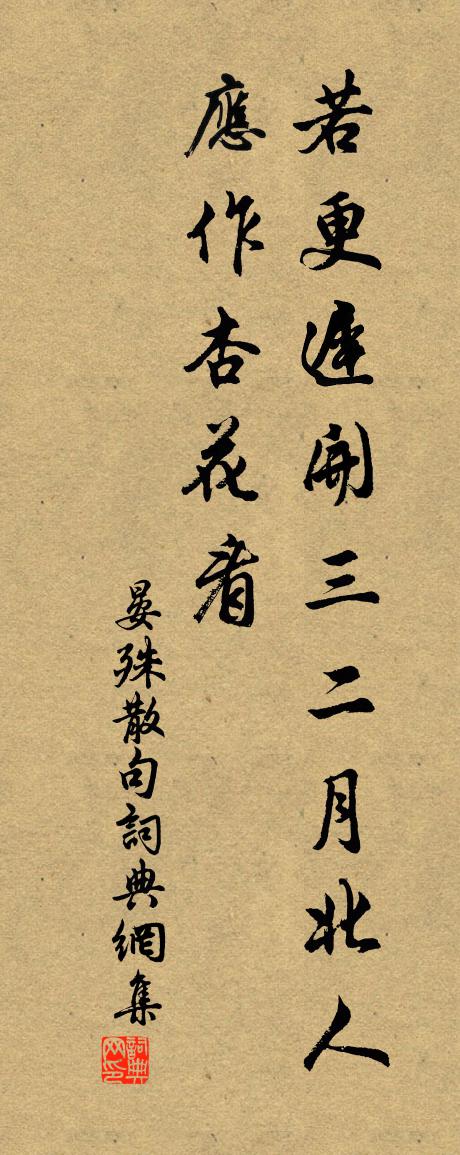 若更遲開三二月北人
應作杏花看
晏殊散句詞典網集
詞典網印